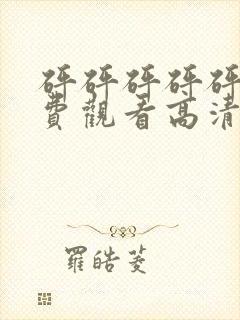 砰砰砰砰砰
費觀看高清
羅皓菱